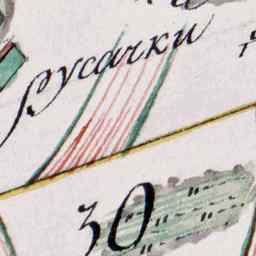 русачки
30